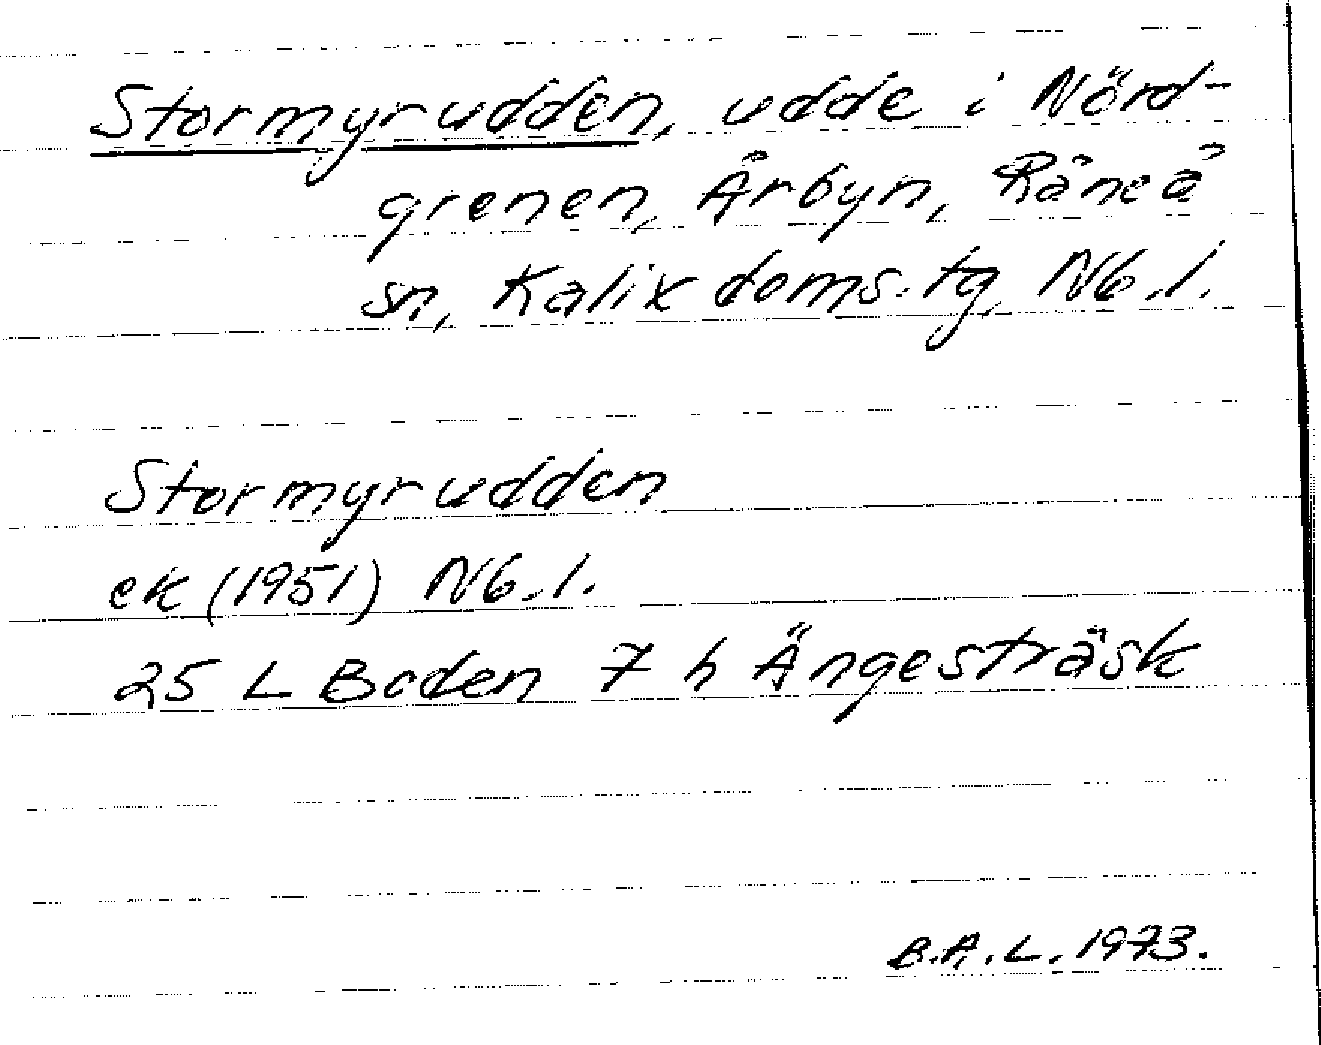 Stormyrudden, udde i Nörd-
grenen, Årbyn, Råneå
sn, Kalix doms. tg, Nb. l.
Stormyrudden
ek (1951) Nb. l.
25 L Boden 7 h Ängesträsk
B.A.L. 1973.